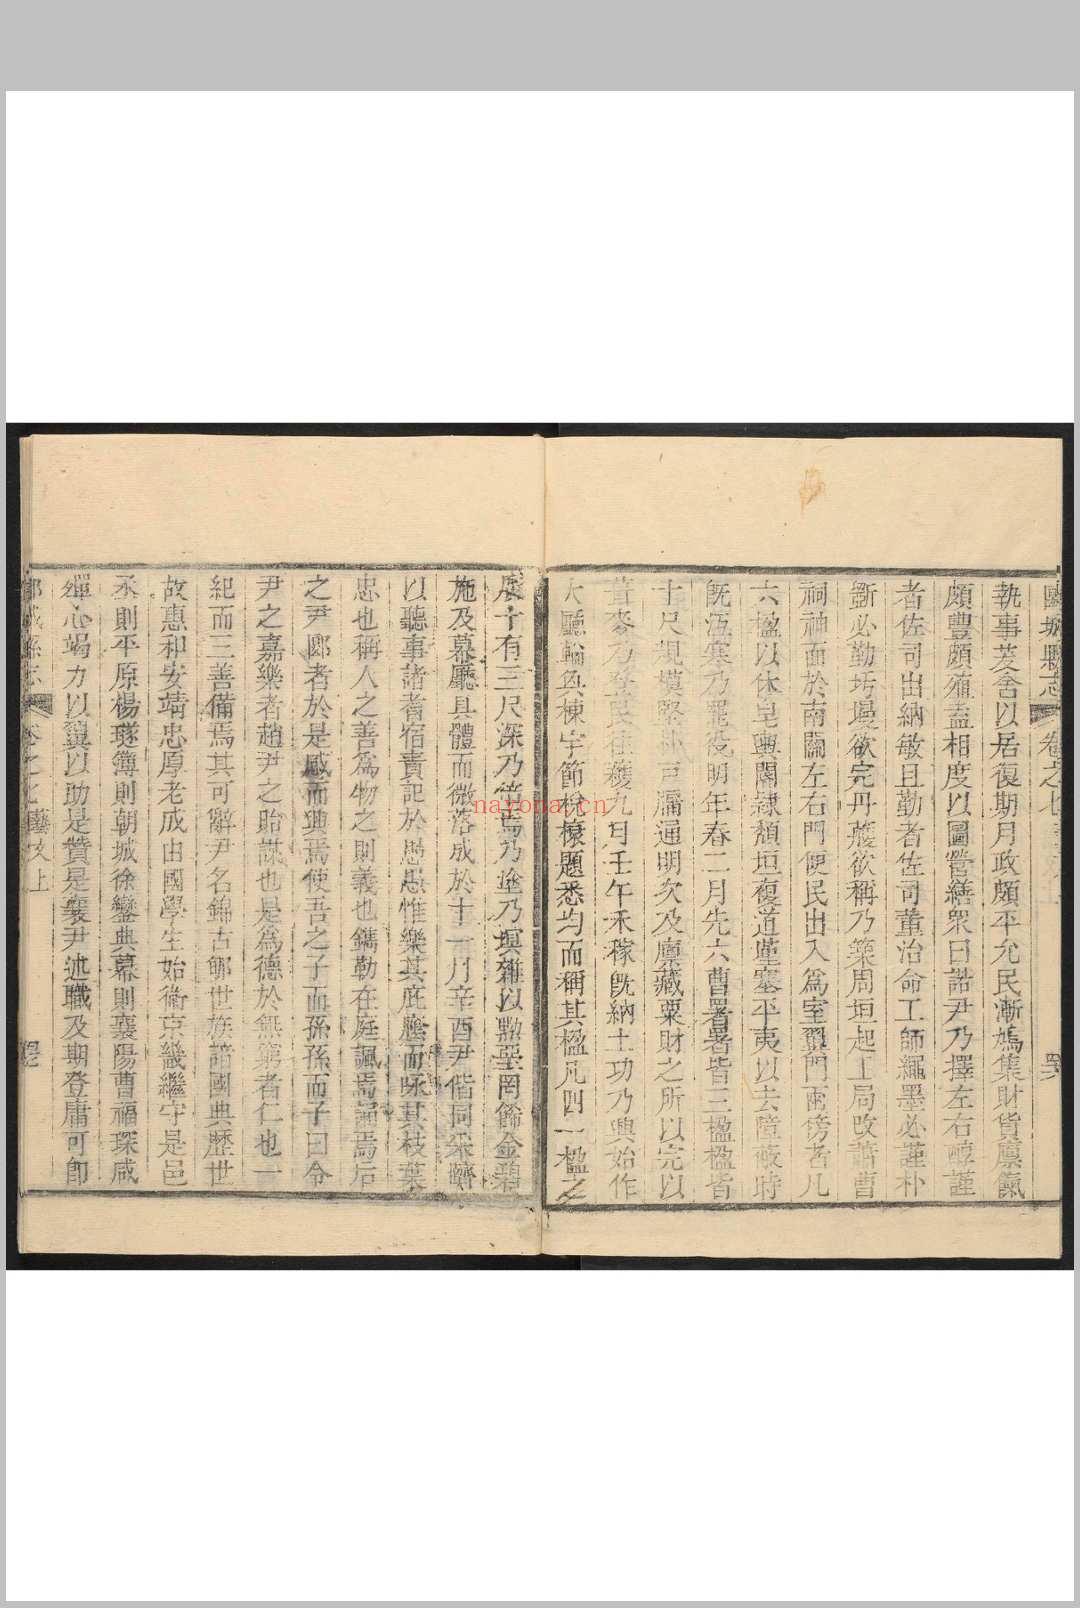 郾城縣志 卷之七 藝文上
執事茇舍以居復期月政頗平允民漸鳩集財貨廪餼
頗豐頗殖盍相度以圖營繕眾曰諾尹乃擇左右醇謹
者佐司出納敏且勤者佐司董治命工師繩墨必謹朴
斲必勤圬墁欲完丹雘欲稱乃築周垣起土局改蕭曹
祠神面於南闢左右門便民出入為室翼門兩傍者凡
六楹以休皂輿闍隸頹垣複道堇塞平夷以去障蔽時
既沍寒乃罷役明年春二月先六曹署署皆三楹楹皆
十尺規模堅 戶牖通明次及廪藏粟財之所以完以
葺麥乃登民 穫九月壬午禾稼既納土功乃興始作
大廳輪奐棟宇節梲榱題悉均而稱其楹凡四一楹之
廣十有三尺深乃倍焉乃塗乃塓雜以黝堊罔餙金碧
施及幕廳具體而微落成於十一月辛酉尹偕同寀躋
以聽事諸耆宿責記於愚愚惟樂其庇廕而咏其枝葉
忠也稱人之善為物之則義也鐫勒在庭諷焉誦焉后
之尹郾者於是感而興焉使吾之子而孫孫而子曰令
尹之嘉樂者趙尹之貽謀也是為德於無窮者仁也一
紀而三善備焉其可辭尹名錦古鄃世族諳國典歷世
故惠和安靖忠厚老成由國學生始衞京畿繼守是邑
丞則平原楊璲簿則朝城徐鑾典幕則襄陽曹福琛咸
殫心竭力以翼以助是贊是襄尹述職及期登庸可卽
郾城縣志 卷之七 藝文上
nayona.cn